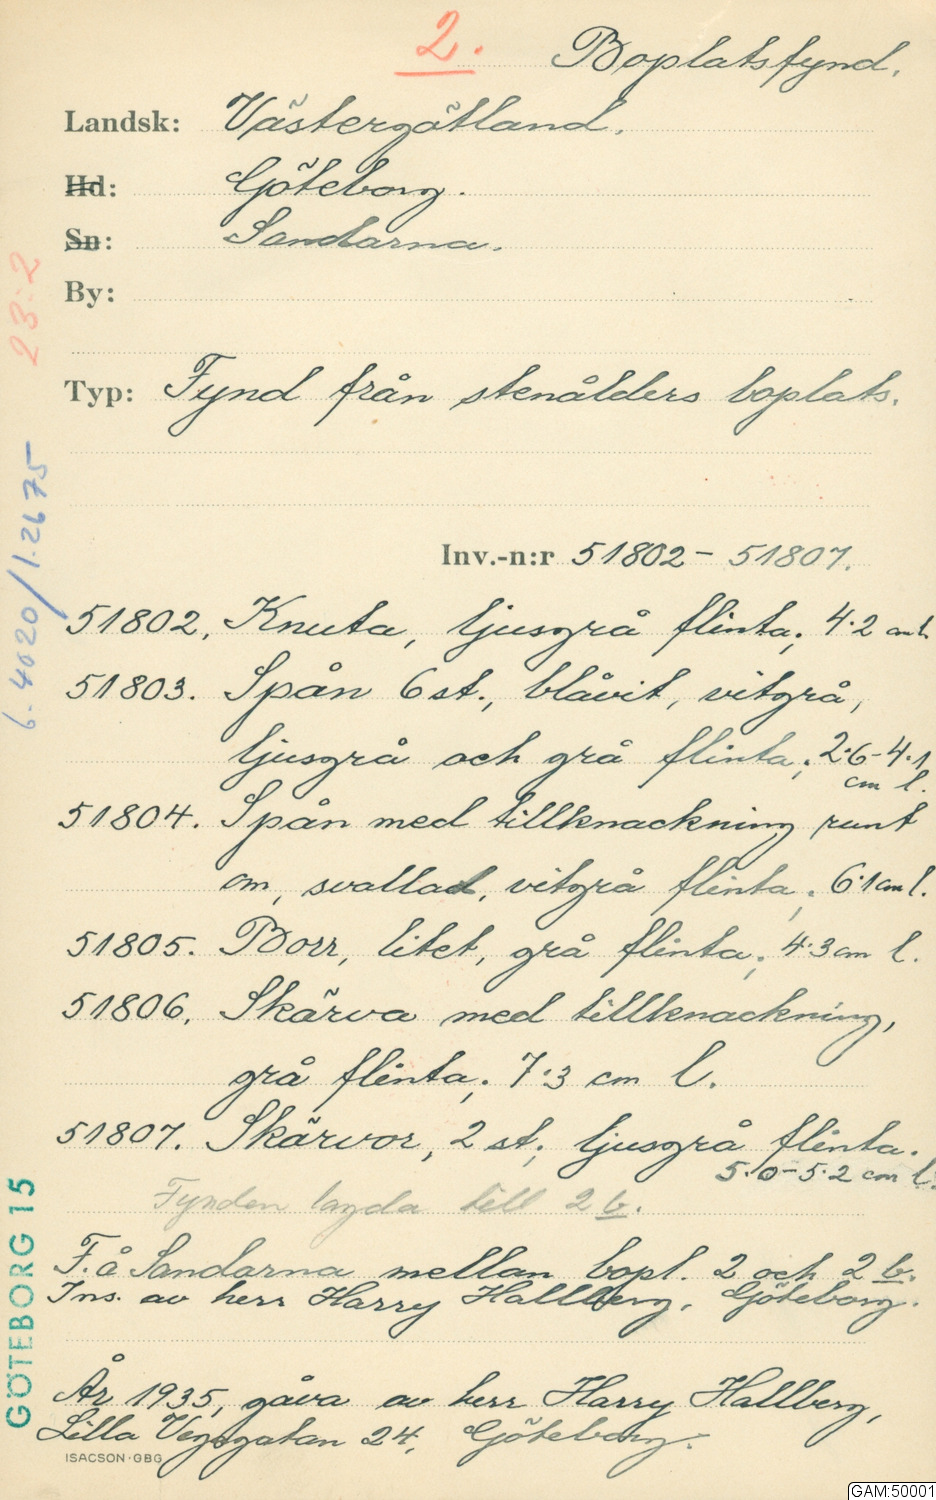 2.
Boplatsfynd.
Landsk: Västergötland.
Hd: Göteborg.
Sn: Sandarna.
By:
Typ: Fynd från stenålders boplats.
Inv.-n:r 51802 - 51807.
51802. Knuta, ljusgrå flinta; 4.2 cm l.
51803. Spån 6 st., blåvit, vitgrå,
ljusgrå och grå flinta; 2.6-4.1
cm l.
51804. Spån med tillknackning runt
om, svallad, vitgrå flinta; 6.1 cm l.
51805. Borr, litet, grå flinta; 4.3 cm l.
51806. Skärva med tillknackning,
grå flinta; 7.3 cm l.
51807. Skärvor, 2 st; ljusgrå flinta.
5.0-5.2 cm l.
Fynden lagda till 2 b.
F. å Sandarna mellan bopl. 2 och 2 b.
Ins. av herr Harry Hallberg, Göteborg.
År 1935, gåva av herr Harry Hallberg,
Lilla Vegagatan 24, Göteborg.
ISACSON·GBG
23:2
6.4020/1.2675
GÖTEBORG 15
GAM:50001